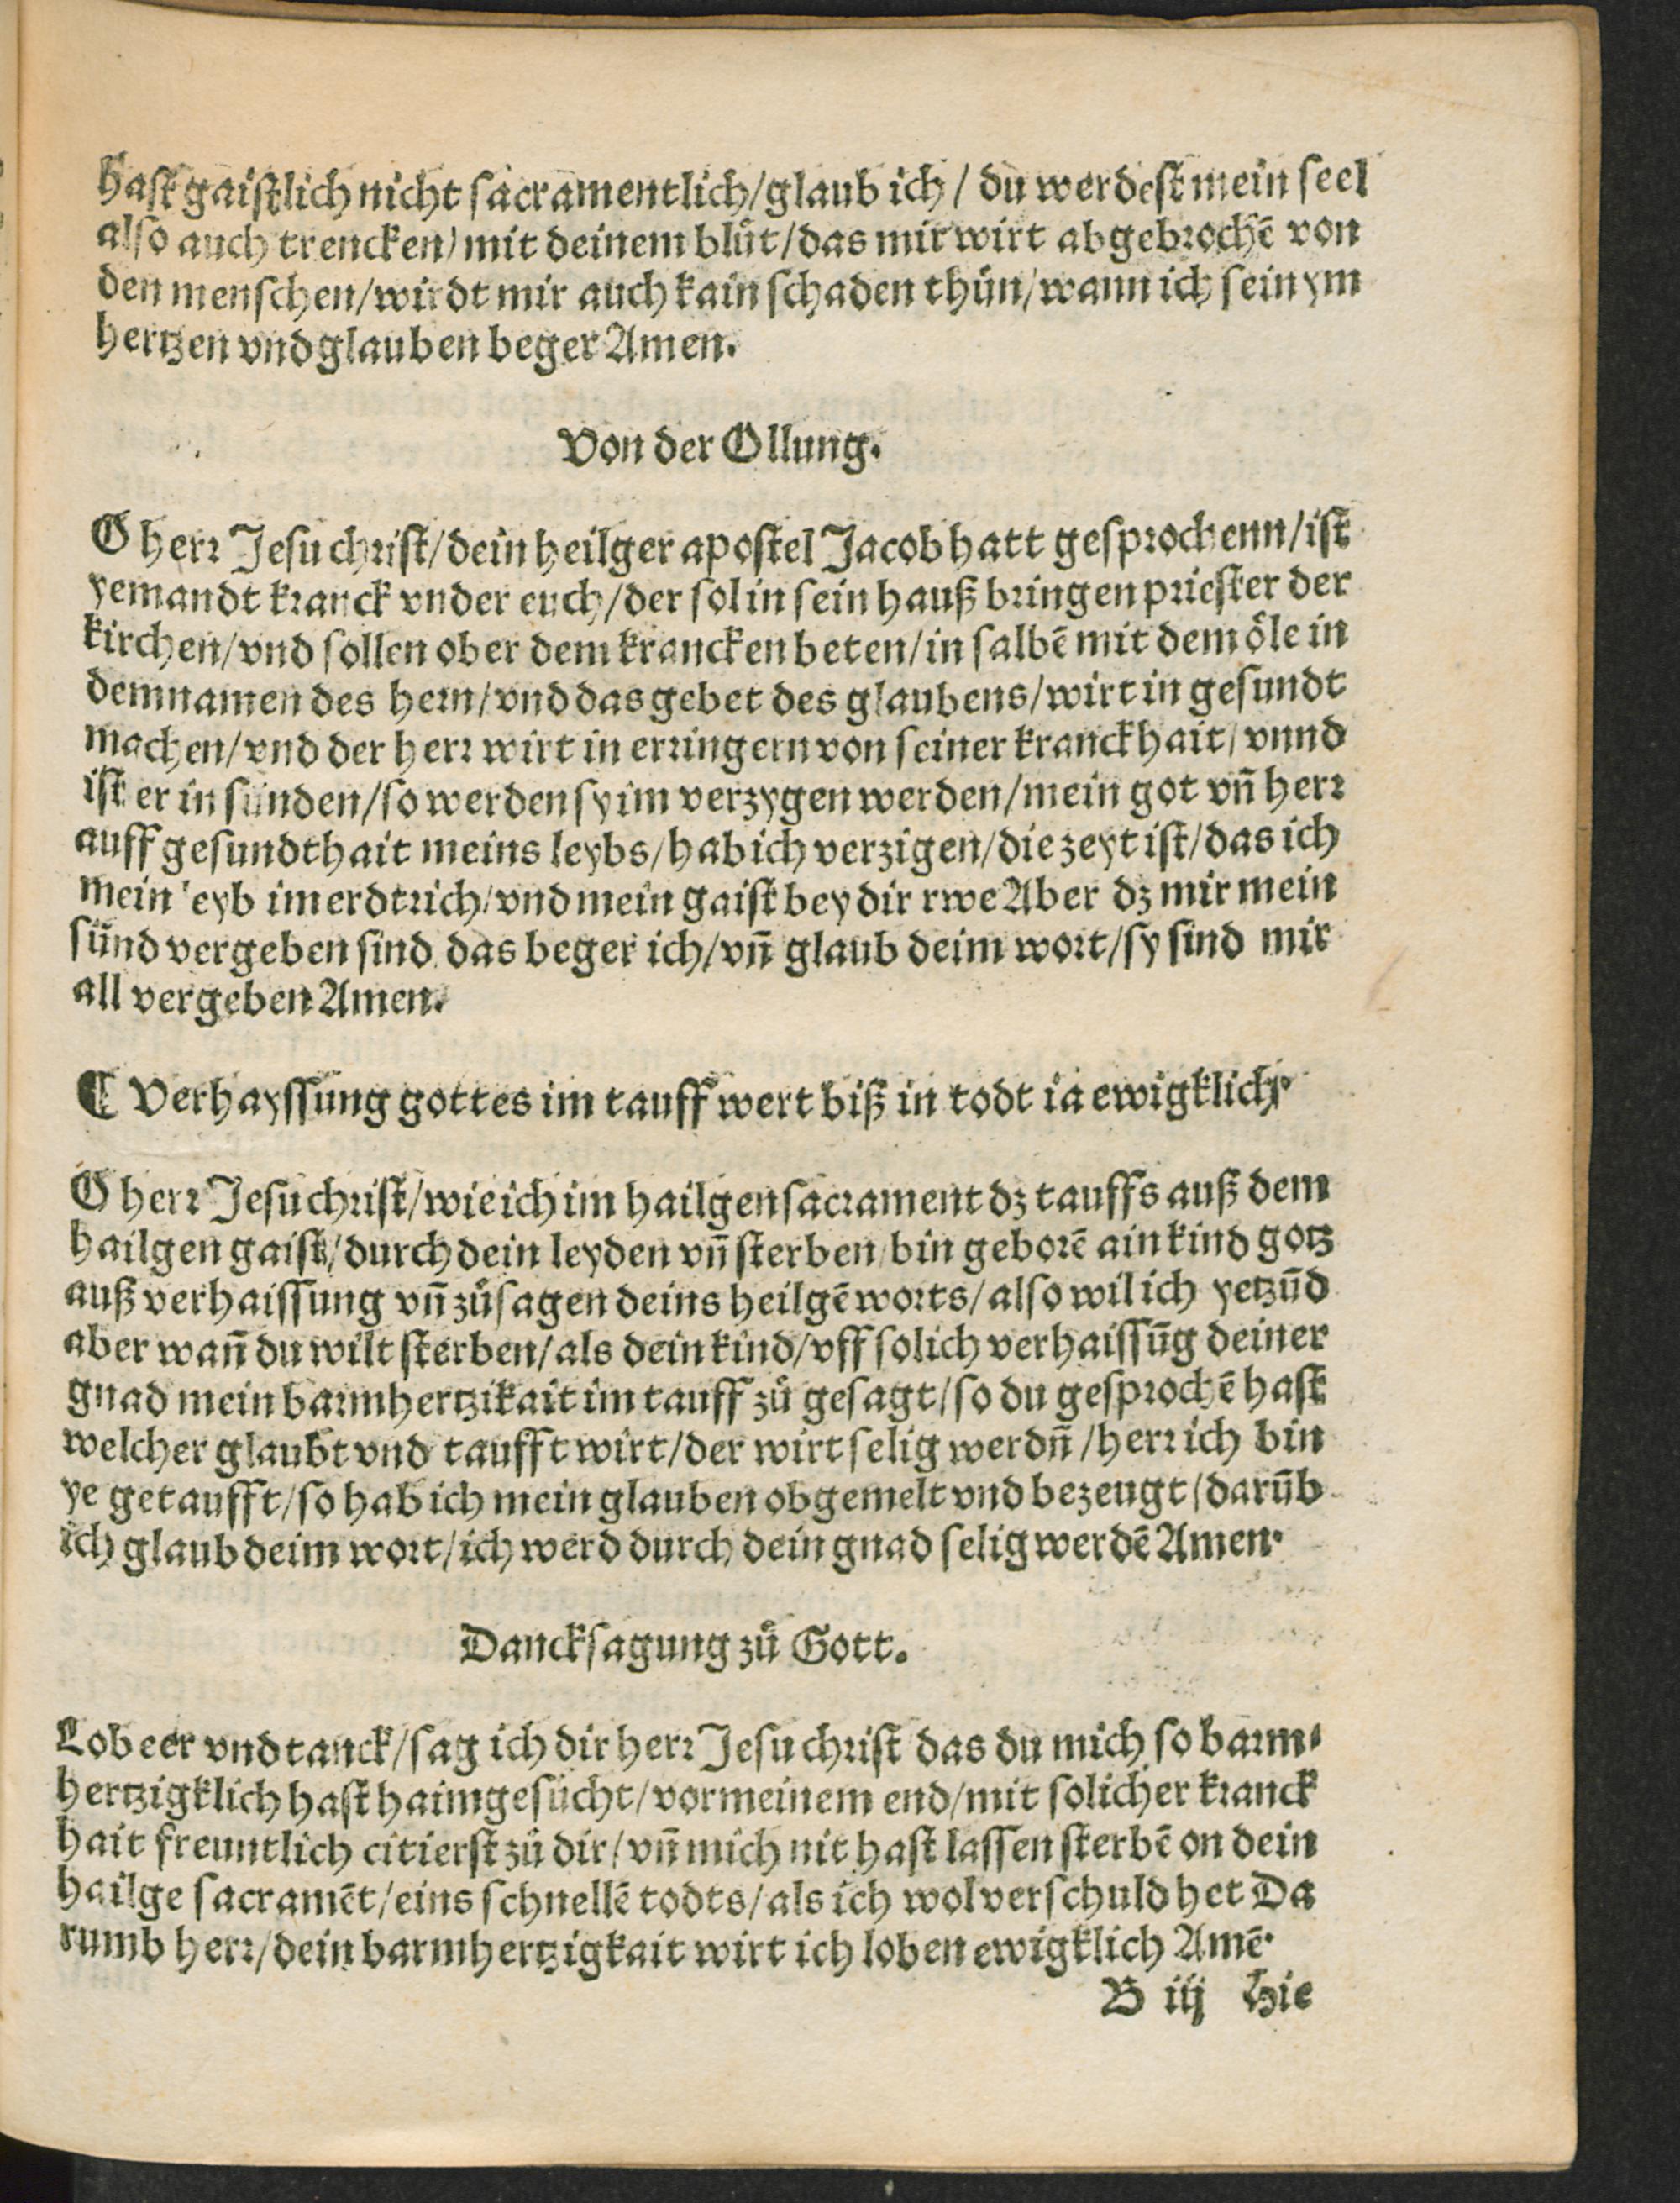 hast gaistlich nicht sacramentlich/glaub ich / du werdest mein seel
also auch trencken/mit deinem blůt/das mir wirt abgebrochē von
den menschen/wirdt mir auch kain schaden thůn/wann ich sein ym
hertzen vnd glauben beger Amen.
Von der Ollung.
O herr Jesu christ/dein heilger apostel Jacob hatt gesprochenn/ist
yemandt kranck vnder euch/der sol in sein hauß bringen priester der
kirchen/vnd sollen ober dem krancken beten/in salbē mit dem öle in
dem namen des hern/vnd das gebet des glaubens/wirt in gesundt
machen/vnd der herr wirt in erringern von seiner kranckhait/vnnd
ist er in sünden/so werden sy im verzygen werden/mein got vn̄ herr
auff gesundthait meins leybs/hab ich verzigen/die zeyt ist/das ich
mein leyb im erdtrich/vnd mein gaist bey dir rwe Aber dz mir mein
sünd vergeben sind das beger ich/vn̄ glaub deim wort/sy sind mir
all vergeben Amen.
¶ Verhayssung gottes im tauff wert biß in todt ia ewigklich.
O herr Jesu christ/wie ich im hailgen sacrament dz tauffs auß dem
hailgen gaist/durch dein leyden vn̄ sterben/bin geborē ain kind gotz
auß verhaissung vn̄ zůsagen deins heilgē worts/also wil ich yetzūd
aber wan̄ du wilt sterben/als dein kind/vff solich verhaissūg deiner
gnad mein barmhertzikait im tauff zů gesagt/so du gesprochē hast
welcher glaubt vnd taufft wirt/der wirt selig werdn̄/herr ich bin
ye getaufft/so hab ich mein glauben obgemelt vnd bezeugt/darūb
ich glaub deim wort/ich werd durch dein gnad selig werdē Amen.
Dancksagung zů Gott.
Lob eer vnd tanck/sag ich dir herr Jesu christ das du mich so barm⸗
hertzigklich hast haimgesůcht/vor meinem end/mit solicher kranck
hait freuntlich citierst zů dir/vn̄ mich nit hast lassen sterbē on dein
hailge sacramēt/eins schnellē todts/als ich wol verschuld het Da
rumb herr/dein barmhertzigkait wirt ich loben ewigklich Amē.
B iij Hie